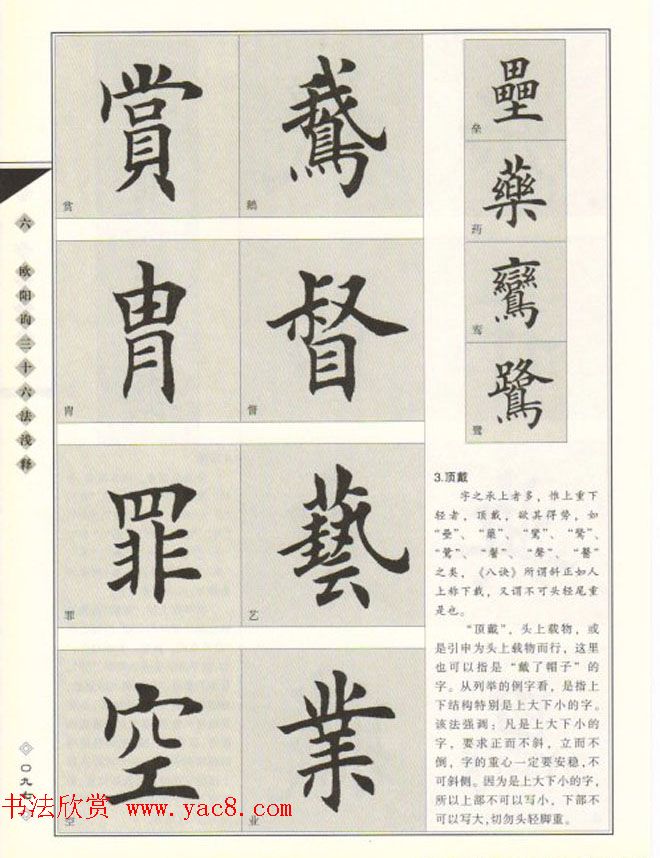 賞
鵝
赏
鹅
冑
督
胄
督
罪
藝
罪
艺
空
業
空
业
壘
垒
藥
药
鸞
鸾
鷺
鹭
3.顶戴
字之承上者多，惟上重下
轻者，顶戴，欲其得势，如
“壘”、“藥”、“鸞”、“驚”、
“鷺”、“髻”、“聲”、“醫”
之类，《八诀》所谓斜正如人
上称下载，又谓不可头轻尾重
是也。
“顶戴”，头上载物，或
是引申为头上载物而行，这里
也可以指是“戴了帽子”的
字。从列举的例字看，是指上
下结构特别是上大下小的字。
该法强调：凡是上大下小的
字，要求正而不斜，立而不
倒，字的重心一定要安稳，不
可斜侧。因为是上大下小的字，
所以上部不可以写小，下部不
可以写大，切勿头轻脚重。
六 欧阳询三十六法浅释
〇九七
书法欣赏 www.yac8.com